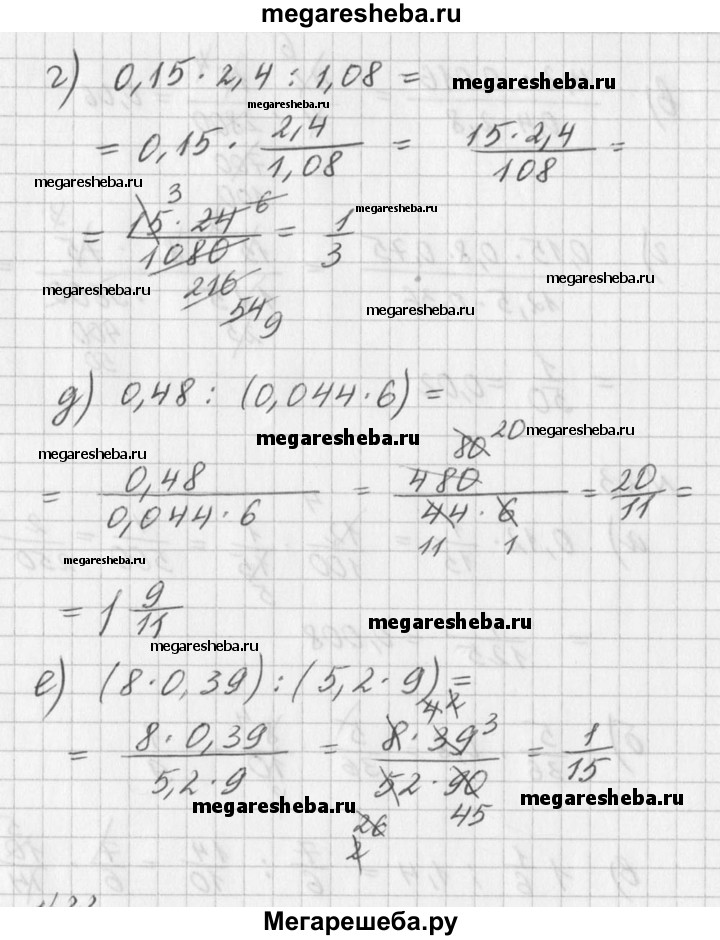 megaresheba.ru
г) 0,15 · 2,4 : 1,08 = megaresheba.ru
megaresheba.ru
= 0,15 · 2,4/1,08 = 15 · 2,4/108 =
megaresheba.ru
3 6 megaresheba.ru
= 15 · 24/1080 = 1/3
megaresheba.ru
216 megaresheba.ru
54 9 megaresheba.ru
д) 0,48 : (0,044 · 6) =
megaresheba.ru 80 20 megaresheba.ru
megaresheba.ru
= 0,48/0,044 · 6 = 480/44 · 6 = 20/11 =
11 1
megaresheba.ru
= 1 9/11 megaresheba.ru
megaresheba.ru
е) (8 · 0,39) : (5,2 · 9) =
4 2
= 8 · 0,39/5,2 · 9 = 8 · 39 3/52 · 90 = 1/15
megaresheba.ru 45 megaresheba.ru
26
2
megaresheba.ru megaresheba.ru
Мегарешеба.ру